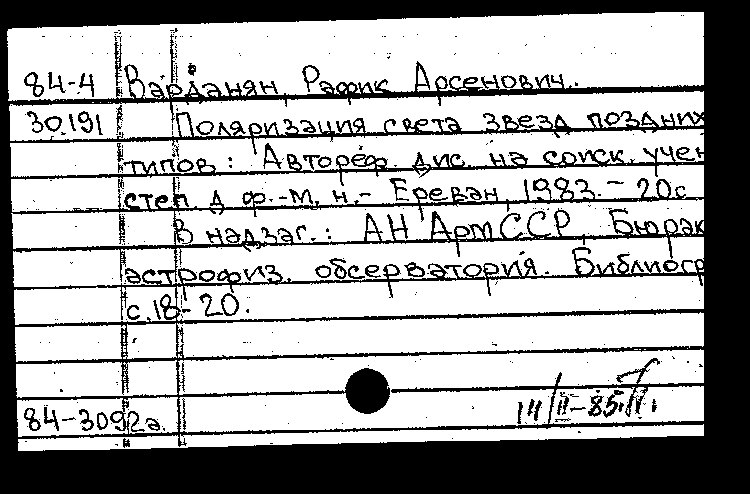 84-4 Варданян, Рафик Арсенович.
30.191 Поляризация света звезд поздних
типов: Автореф. дис. на соиск. учен
степ. д. ф.-м. н. - Ереван, 1983. - 20с
В надзаг.: АН АрмССР, Бюрак
астрофиз. обсерватория. Библиогр
с. 18-20.
84-3092а
14/II-85г.